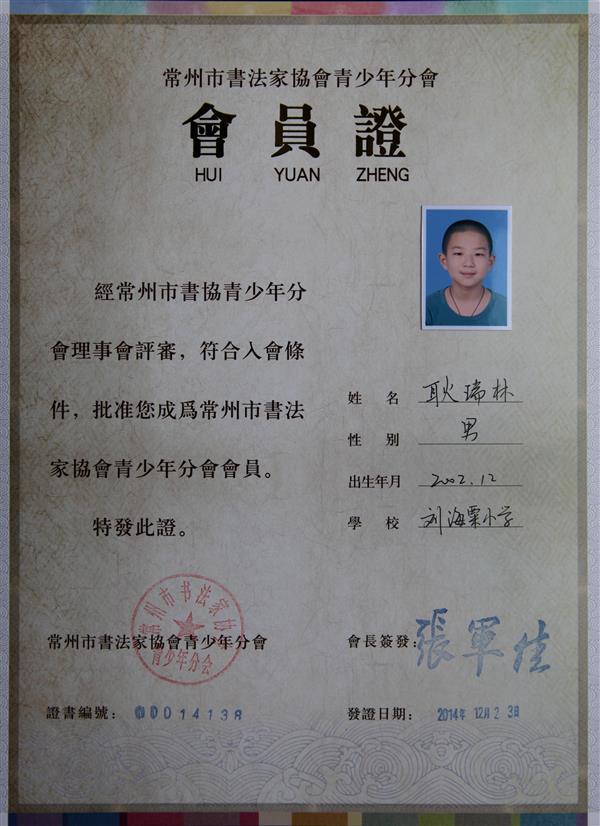 常州市書法家協會青少年分會
會員證
HUI YUAN ZHENG
經常州市書協青少年分
會理事會評審，符合入會條
件，批准您成爲常州市書法
家協會青少年分會會員。
特發此證。
姓 名 耿瑞林
性 别 男
出生年月 2002.12
學 校 刘海粟小学
常州市书法家协会
青少年分会
常州市書法家協會青少年分會
會長簽發：張軍佳
證書編號：00014138
發證日期：2014年 12月 2 3日